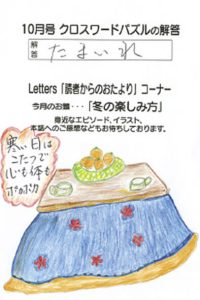 10月号 クロスワードパズルの解答
解答 たまいれ
Letters「読者からのおたより」コーナー
今月のお題･･･「冬の楽しみ方」
身近なエピソード、イラスト、
本誌へのご感想などもお待ちしております。
寒い日は
こたつで
心も体も
ポカポカ